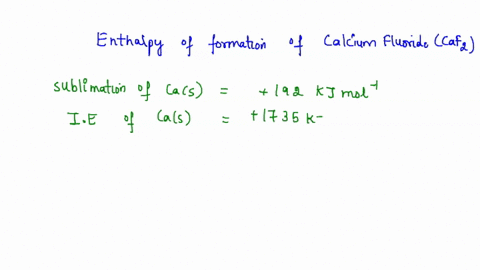 Enthalpy of formation of Calcium Fluoride (CaF2)
sublimation of Ca(s) = +192 KJ mol⁻¹
I.E of Ca(s) = +1735 K-